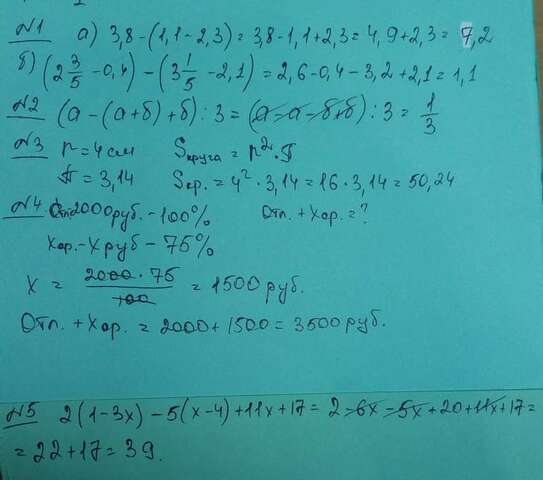 №1 а) 3,8-(1,1-2,3)=3,8-1,1+2,3=4,9+2,3=7,2
б) (2 3/5 -0,4)-(3 1/5 -2,1)=2,6-0,4-3,2+2,1=1,1
№2 (а-(а+б)+б):3=(а-а-б+б):3=1/3
№3 r=4см Sкруга=r²·П
П=3,14 Sкр.=4²·3,14=16·3,14=50,24
№4 Отл-2000руб.-100% Отл.+Хор.=?
Хор.-Х руб-75%
Х=2000·75/100=1500руб.
Отл.+Хор.=2000+1500=3500руб.
№5 2(1-3х)-5(х-4)+11х+17=2-6х-5х+20+11х+17=
=22+17=39.